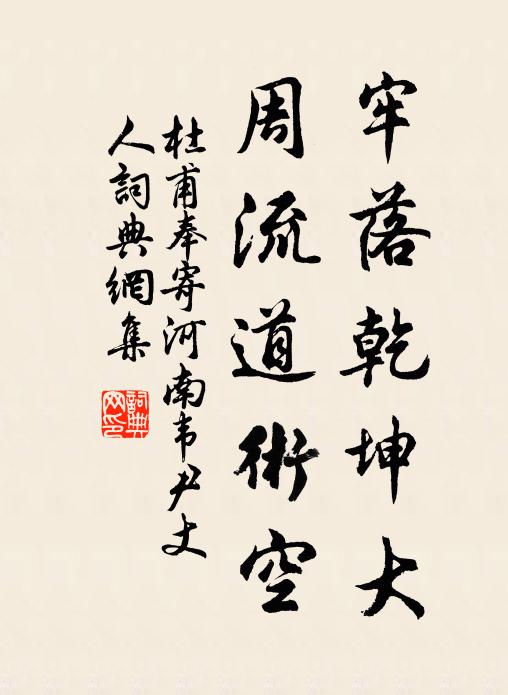 牢落乾坤大
周流道術空
杜甫奉寄河南韦尹丈
人詞典網集
詞典
网印